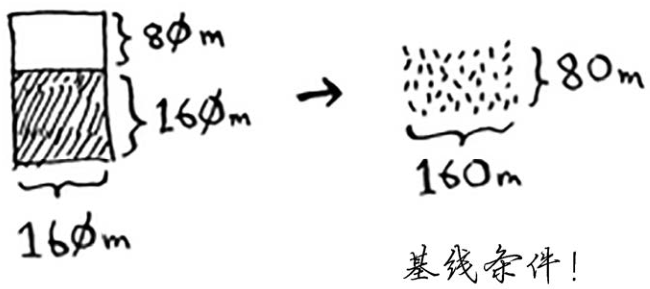 80m
160m
160m
80m
160m
基线条件!